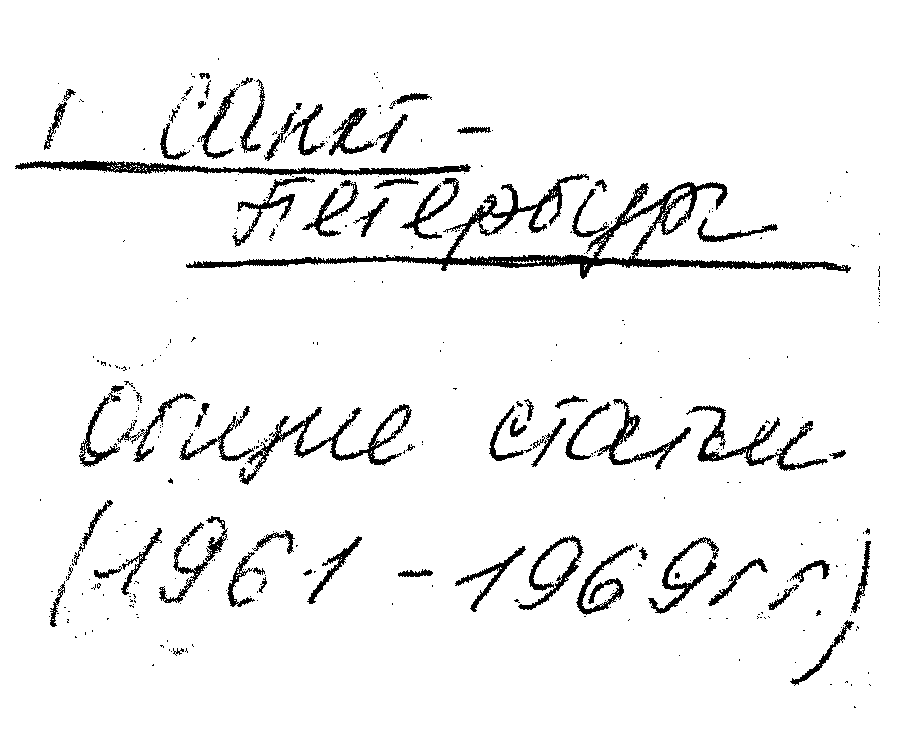 1 Санкт-
Петербург
Общие статьи
(1961-1969гг.)